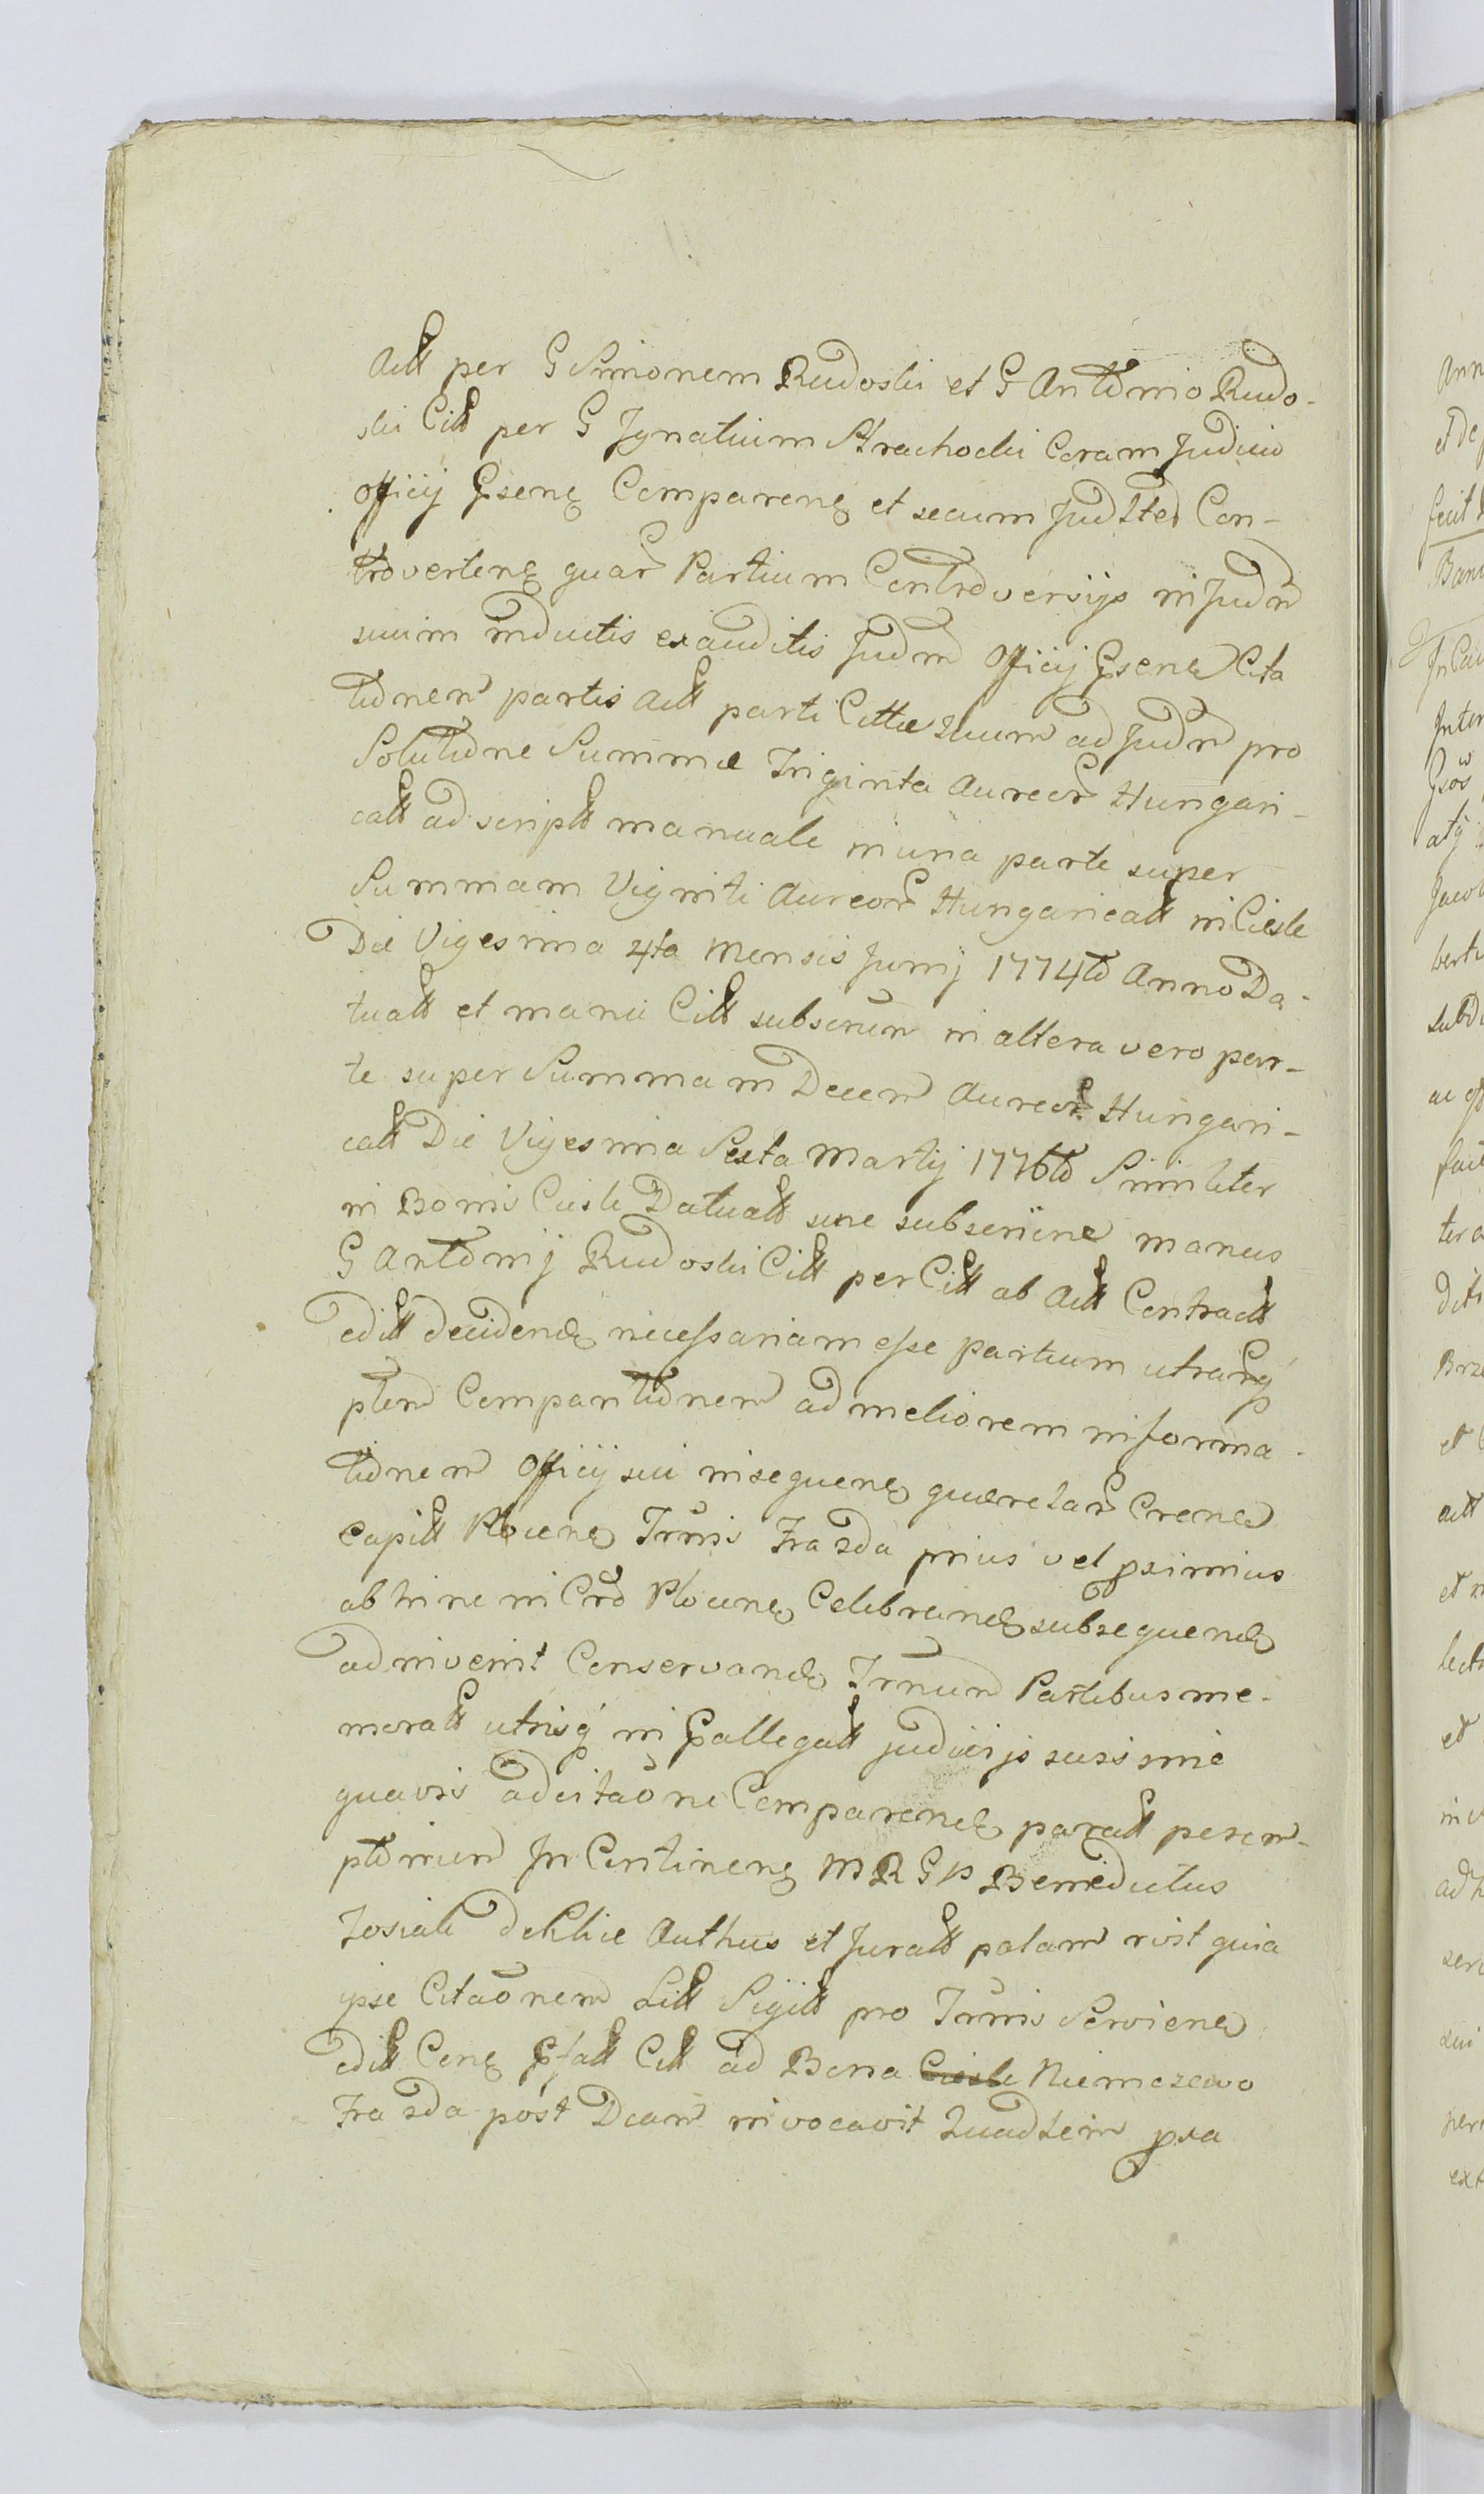 Actt per G Simonem Rudoski et G Antonio Rudo-
ski Citt per G Ignatium Strachocki Coram Judicio
Officij Gsens Comparens et secum Judlter Con-
trovertens quar Partium Controversijs in Judm
suum inductis exauditis Judm Officij Gsens Cita
tionem partis Actt parti Cittæ suum ad Judm pro
Solutione Summæ Triginta Aureor Hungari-
catt ad scriptt manuale in una parte super
Summam Viginti Aureor Hungaricatt in Ciesle
Die Vigesima 4ta Mensis Junij 1774to Anno Da-
tuatt et manu Citt subscrum in altera vero par-
te super Summam Decem Aureor Hungari-
catt Die Vigesima Sexta Martij 1776to Similiter
in Bonis Ciesle Datuatt sine subscrine manus
G Antonij Rudoski Citt per Citt ab Actt Contractt
editt decidend necessariam esse partium utrarq
plem Comparitionem ad meliorem informa-
tionem Officij sui insequens quærelar Crens
Capitt Plocens Trmis Fra 2da prius vel pximius
ab hinc in Crd Plocens Celebrand subsequend
adinvenit Conservand Trmum Partibus me-
moratt utrisq in Pallegatt judicijs suis sine
quavis adcitaone Comparend paratt perem-
ptorium In Continens MRGP Benedictus
Zosiak de Klice Authus et Juratt palam rvit quia
ipse Citaonem Litt Sigitt pro Trmis Serviens
editt Cens Pfatt Citt ad Bona Ciesle Niemczewo
Fra 2da post Dcam invocavit Quadlem pxa
Ann
et de
fecit
In Cau
Inter
atq
Jacob
berti
subdi
ter a
diti
Brze
et
actt
et
lecti
et
ad h
ser
sui
per
ext